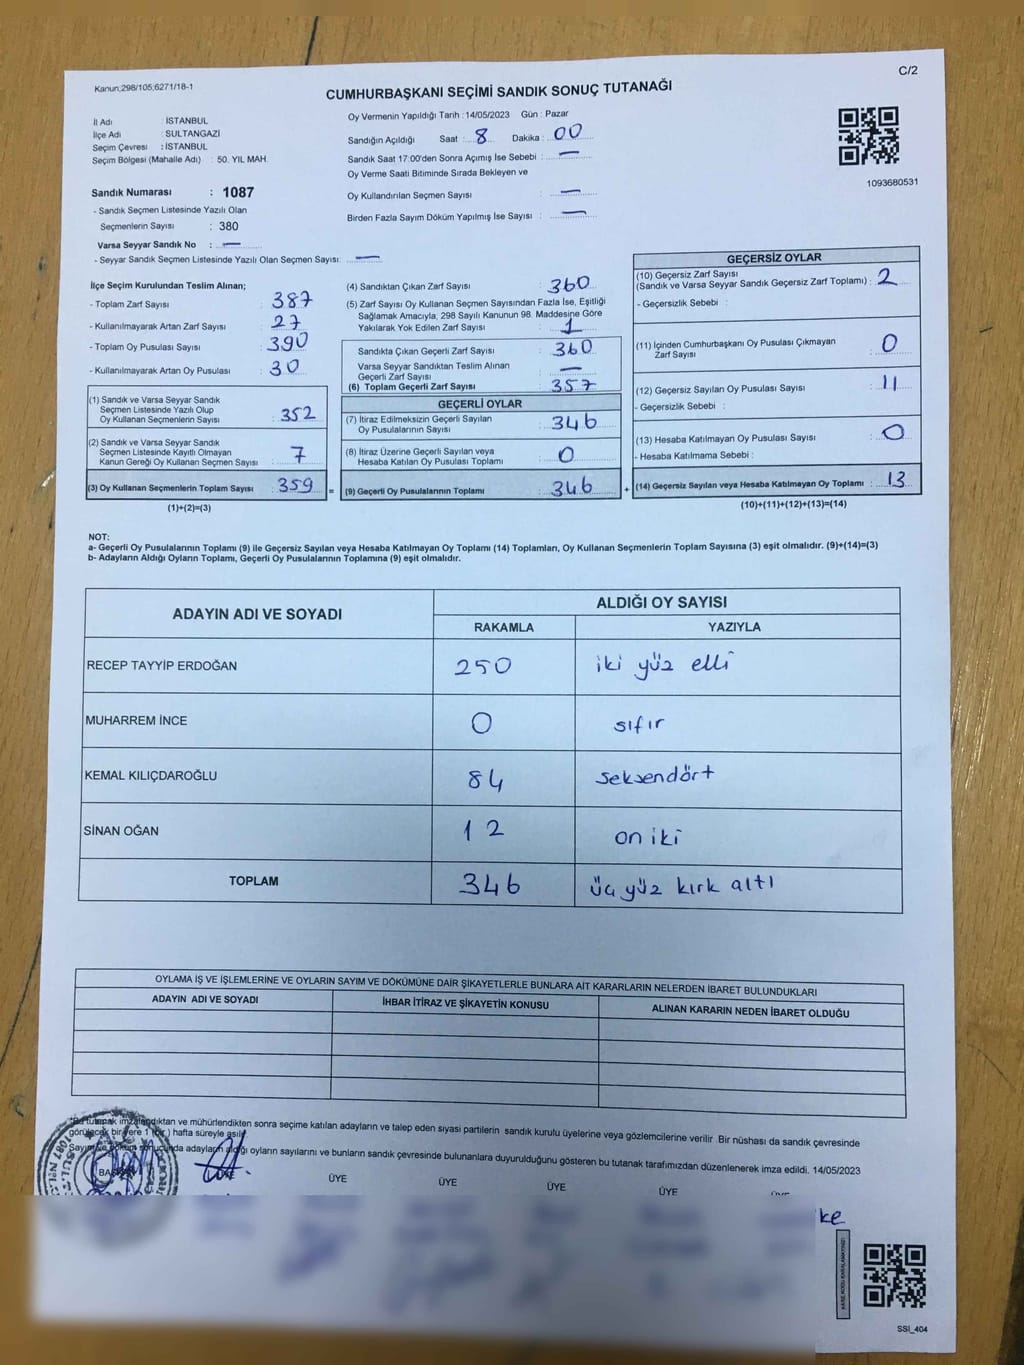 Kanun;298/105;6271/18-1
C/2
CUMHURBAŞKANI SEÇİMİ SANDIK SONUÇ TUTANAĞI
İl Adı : İSTANBUL
İlçe Adı : SULTANGAZİ
Seçim Çevresi : İSTANBUL
Seçim Bölgesi (Mahalle Adı) : 50. YIL MAH.
Sandık Numarası : 1087
- Sandık Seçmen Listesinde Yazılı Olan
Seçmenlerin Sayısı : 380
Varsa Seyyar Sandık No : —
- Seyyar Sandık Seçmen Listesinde Yazılı Olan Seçmen Sayısı: —
Oy Vermenin Yapıldığı Tarih : 14/05/2023 Gün : Pazar
Sandığın Açıldığı Saat : 8 Dakika : 00
Sandık Saat 17:00'den Sonra Açımış İse Sebebi : —
Oy Verme Saati Bitiminde Sırada Bekleyen ve
Oy Kullandırılan Seçmen Sayısı : —
Birden Fazla Sayım Döküm Yapılmış İse Sayısı : —
1093680531
İlçe Seçim Kurulundan Teslim Alınan;
- Toplam Zarf Sayısı : 387
- Kullanılmayarak Artan Zarf Sayısı : 27
- Toplam Oy Pusulası Sayısı : 390
- Kullanılmayarak Artan Oy Pusulası : 30
(1) Sandık ve Varsa Seyyar Sandık
Seçmen Listesinde Yazılı Olup
Oy Kullanan Seçmenlerin Sayısı : 352
(2) Sandık ve Varsa Seyyar Sandık
Seçmen Listesinde Kayıtlı Olmayan
Kanun Gereği Oy Kullanan Seçmen Sayısı : 7
(3) Oy Kullanan Seçmenlerin Toplam Sayısı : 359
(1)+(2)=(3)
(4) Sandıktan Çıkan Zarf Sayısı : 360
(5) Zarf Sayısı Oy Kullanan Seçmen Sayısından Fazla İse, Eşitliği
Sağlamak Amacıyla, 298 Sayılı Kanunun 98. Maddesine Göre
Yakılarak Yok Edilen Zarf Sayısı : 1
Sandıkta Çıkan Geçerli Zarf Sayısı : 360
Varsa Seyyar Sandıktan Teslim Alınan
Geçerli Zarf Sayısı : —
(6) Toplam Geçerli Zarf Sayısı : 357
GEÇERLİ OYLAR
(7) İtiraz Edilmeksizin Geçerli Sayılan
Oy Pusulalarının Sayısı : 346
(8) İtiraz Üzerine Geçerli Sayılan veya
Hesaba Katılan Oy Pusulası Toplamı : 0
= (9) Geçerli Oy Pusulalarının Toplamı : 346
GEÇERSİZ OYLAR
(10) Geçersiz Zarf Sayısı
(Sandık ve Varsa Seyyar Sandık Geçersiz Zarf Toplamı) : 2
- Geçersizlik Sebebi :
(11) İçinden Cumhurbaşkanı Oy Pusulası Çıkmayan
Zarf Sayısı : 0
(12) Geçersiz Sayılan Oy Pusulası Sayısı : 11
- Geçersizlik Sebebi :
(13) Hesaba Katılmayan Oy Pusulası Sayısı : 0
- Hesaba Katılmama Sebebi :
+ (14) Geçersiz Sayılan veya Hesaba Katılmayan Oy Toplamı : 13
(10)+(11)+(12)+(13)=(14)
NOT:
a- Geçerli Oy Pusulalarının Toplamı (9) ile Geçersiz Sayılan veya Hesaba Katılmayan Oy Toplamı (14) Toplamları, Oy Kullanan Seçmenlerin Toplam Sayısına (3) eşit olmalıdır. (9)+(14)=(3)
b- Adayların Aldığı Oyların Toplamı, Geçerli Oy Pusulalarının Toplamına (9) eşit olmalıdır.
ADAYIN ADI VE SOYADI
ALDIĞI OY SAYISI
RAKAMLA YAZIYLA
RECEP TAYYİP ERDOĞAN 250 iki yüz elli
MUHARREM İNCE 0 sıfır
KEMAL KILIÇDAROĞLU 84 seksendört
SİNAN OĞAN 12 on iki
TOPLAM 346 üç yüz kırk altı
OYLAMA İŞ VE İŞLEMLERİNE VE OYLARIN SAYIM VE DÖKÜMÜNE DAİR ŞİKAYETLERLE BUNLARA AİT KARARLARIN NELERDEN İBARET BULUNDUKLARI
ADAYIN ADI VE SOYADI İHBAR İTİRAZ VE ŞİKAYETİN KONUSU ALINAN KARARIN NEDEN İBARET OLDUĞU
*Bu tutanak imzalandıktan ve mühürlendikten sonra seçime katılan adayların ve talep eden siyasi partilerin sandık kurulu üyelerine veya gözlemcilerine verilir. Bir nüshası da sandık çevresinde
görülecek bir yere 1 (bir) hafta süreyle asılır.
Sayım ve döküm sonucunda adayların aldığı oyların sayılarını ve bunların sandık çevresinde bulunanlara duyurulduğunu gösteren bu tutanak tarafımızdan düzenlenerek imza edildi. 14/05/2023
BAŞKAN ÜYE ÜYE ÜYE ÜYE ÜYE
ke
SSI_404